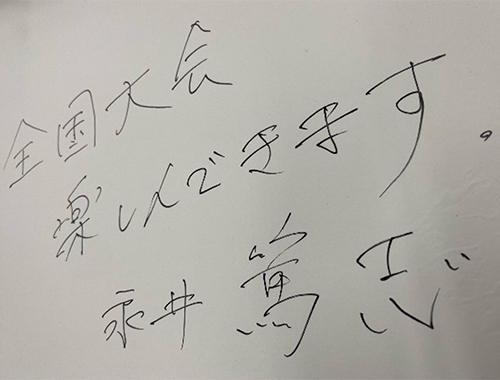 全国大会
楽しんできます。
永井 篤志